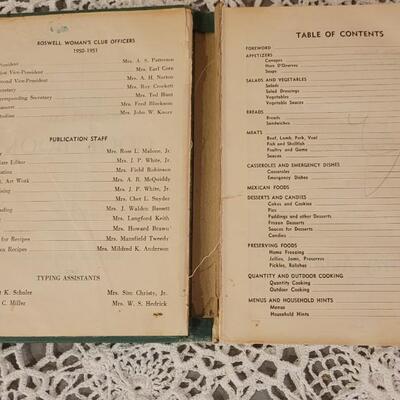 ROSWELL WOMAN'S CLUB OFFICERS
1950-1951
President Mrs. A. S. Patterson
Vice-President Mrs. Earl Corn
Vice-President Mrs. A. H. Norton
Secretary Mrs. Roy Crockett
Secretary Mrs. Ted Hunt
Mrs. Fred Blackson
Mrs. John W. Knorr
PUBLICATION STAFF
Mrs. Ross L. Malone, Jr.
Editor Mrs. J. P. White, Jr.
Mrs. Field Robinson
Art Work Mrs. A. B. McQuiddy
Mrs. J. P. White, Jr.
Mrs. Chet L. Snyder
Mrs. J. Walden Bassett
Mrs. Langford Keith
Mrs. Howard
for Recipes Mrs. Mansfield Tweedy
Recipes Mrs. Mildred K. Anderson
TYPING ASSISTANTS
K. Schuler Mrs. Sim Christy, Jr.
C. Miller Mrs. W. S. Hedrick
TABLE OF CONTENTS
FOREWORD
APPETIZERS
Canapes
Hors D'Oeuvres
Soups
SALADS AND VEGETABLES
Salads
Salad Dressings
Vegetables
Vegetable Sauces
BREADS
Breads
Sandwiches
MEATS
Beef, Lamb, Pork, Veal
Fish and Shellfish
Poultry and Game
Sauces
CASSEROLES AND EMERGENCY DISHES
Casseroles
Emergency Dishes
MEXICAN FOODS
DESSERTS AND CANDIES
Cakes and Cookies
Pies
Puddings and other Desserts
Frozen Desserts
Sauces for Desserts
Candies
PRESERVING FOODS
Home Freezing
Jellies, Jams, Preserves
Pickles, Relishes
QUANTITY AND OUTDOOR COOKING
Quantity Cooking
Outdoor Cooking
MENUS AND HOUSEHOLD HINTS
Menus
Household Hints